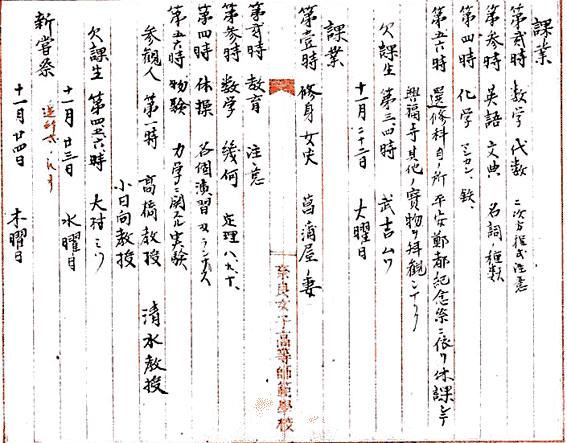 課業
第弐時 数学 代数 二次方程式注意
第参時 英語 文典 名詞種類
第四時 化学 マンガン、鉄、
第五六時 選修科目ノ所平安鄭都紀念祭ニ依リ休課シテ
興福寺其他ノ實物ヲ拝観シナリ
欠課生 第三、四時 武吉ムツ
十一月二十二日 火曜日
課業
第壹時 修身 女史 菖蒲屋妻
第弐時 教育 注意
第参時 数学 幾何 定理八、九、十、
第四時 体操 各個演習
第五六時 物験 力学ニ関スル実験
参観人 第一時 高橋教授 清水教授
小日向教授
欠課生 第四五六時 大村ミツ
十一月廿三日 水曜日
新嘗祭
十一月廿四日 木曜日
奈良女子高等師範學校